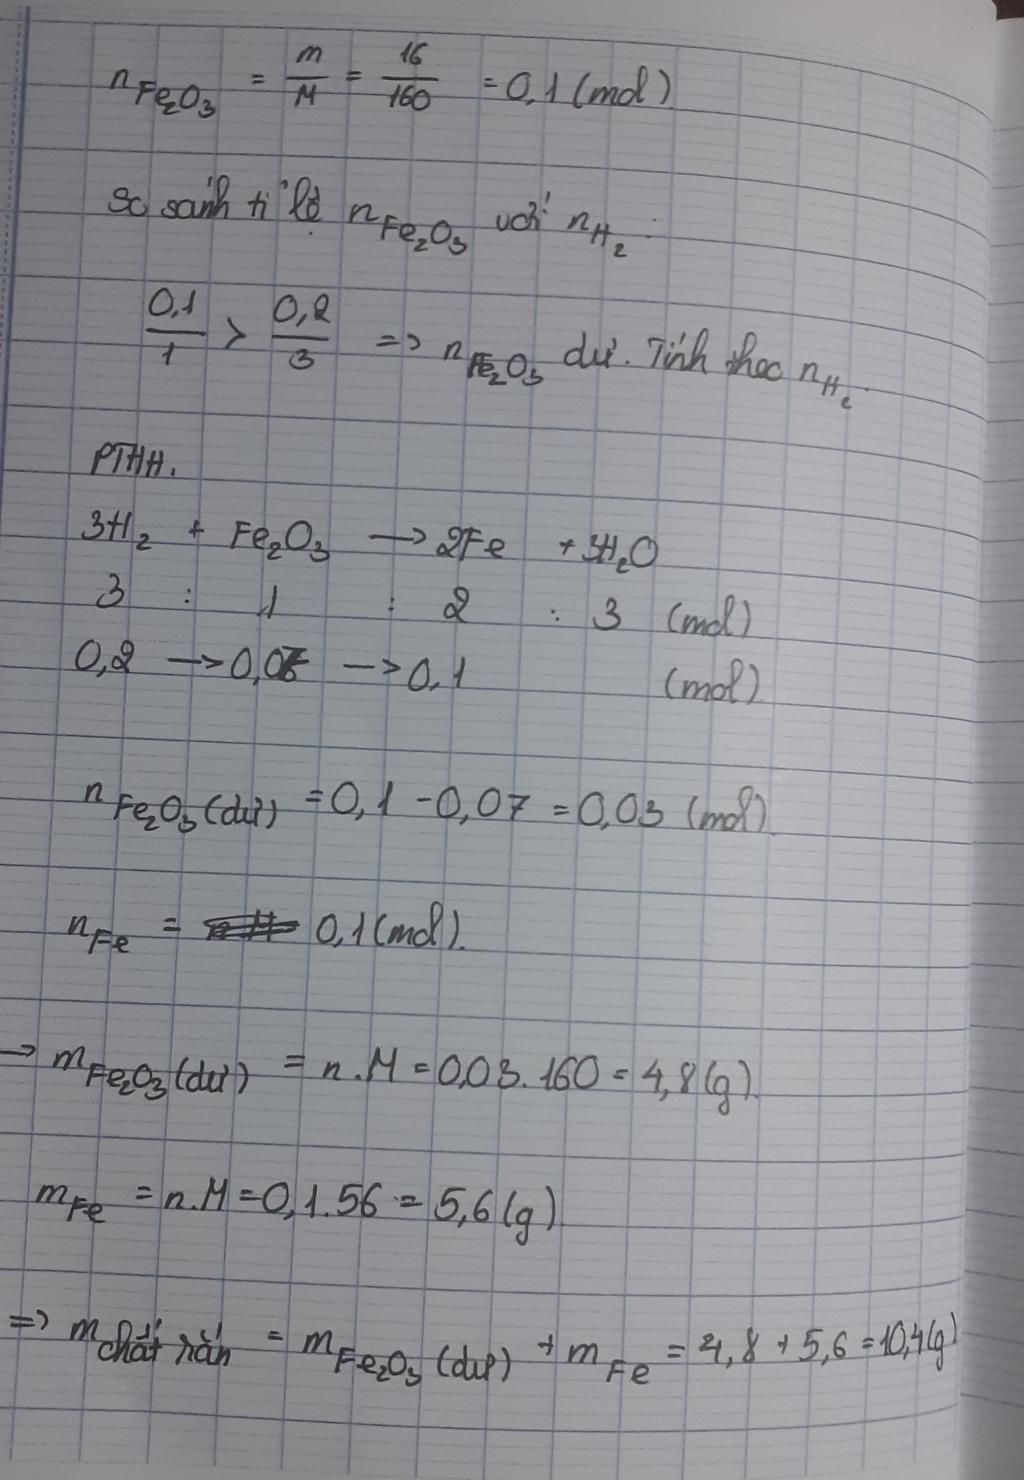 nFe₂O₃ = m/M = 16/160 = 0,1 (mol)
So sánh tỉ lệ nFe₂O₃ với nH₂.
0,1/1 > 0,2/3 => nFe₂O₃ dư. Tính theo nH₂.
PTHH.
3H₂ + Fe₂O₃ → 2Fe + 3H₂O
3 : 1 : 2 : 3 (mol)
0,2 → 0,07 → 0,1 (mol)
nFe₂O₃(dư) = 0,1 - 0,07 = 0,03 (mol)
nFe = 0,1 (mol).
→ mFe₂O₃(dư) = n.M = 0,03.160 = 4,8 (g).
mFe = n.M = 0,1.56 = 5,6 (g)
=> m chất rắn = mFe₂O₃(dư) + mFe = 4,8 + 5,6 = 10,4 (g)